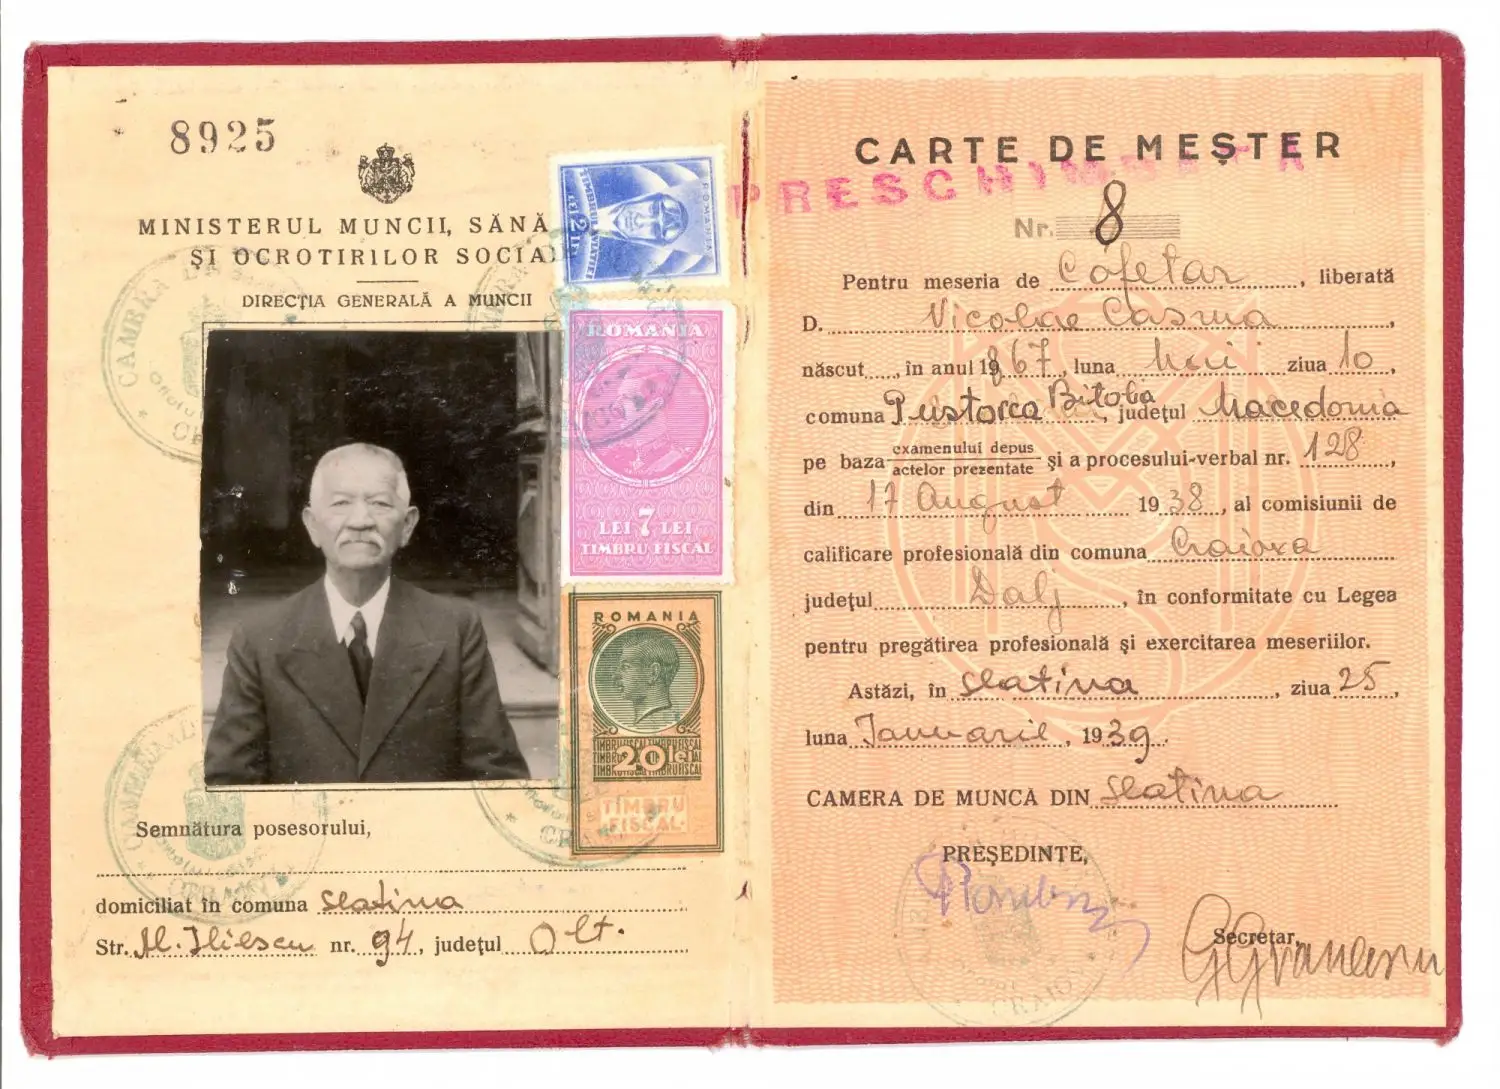 8925
MINISTERUL MUNCII, SĂNĂ
ȘI OCROTIRILOR SOCIA
DIRECȚIA GENERALĂ A MUNCII
ROMANIA
TIMBRUL AVIAȚIEI
LEI 2 LEI
ROMANIA
LEI 7 LEI
TIMBRU FISCAL
ROMANIA
20 lei
TIMBRU
FISCAL
CAMERA DE
CAMERA DE
Semnătura posesorului,
domiciliat în comuna Slatina
Str. M. Iliescu nr. 94, județul Olt.
CARTE DE MEȘTER
PRESCHIMBATA
Nr. 8
Pentru meseria de Cofetar, liberată
D. Nicolae Casma,
născut, în anul 1867, luna Mai ziua 10,
comuna Pustorca Bitolia, județul Macedonia
pe baza examenului depus
actelor prezentate și a procesului-verbal nr. 128,
din 17 August 1938, al comisiunii de
calificare profesională din comuna Craiova
județul Dolj, în conformitate cu Legea
pentru pregătirea profesională și exercitarea meseriilor.
Astăzi, în Slatina, ziua 25,
luna Ianuarie, 1939.
CAMERA DE MUNCĂ DIN Slatina
PREȘEDINTE,
Secretar,
CRAIOV